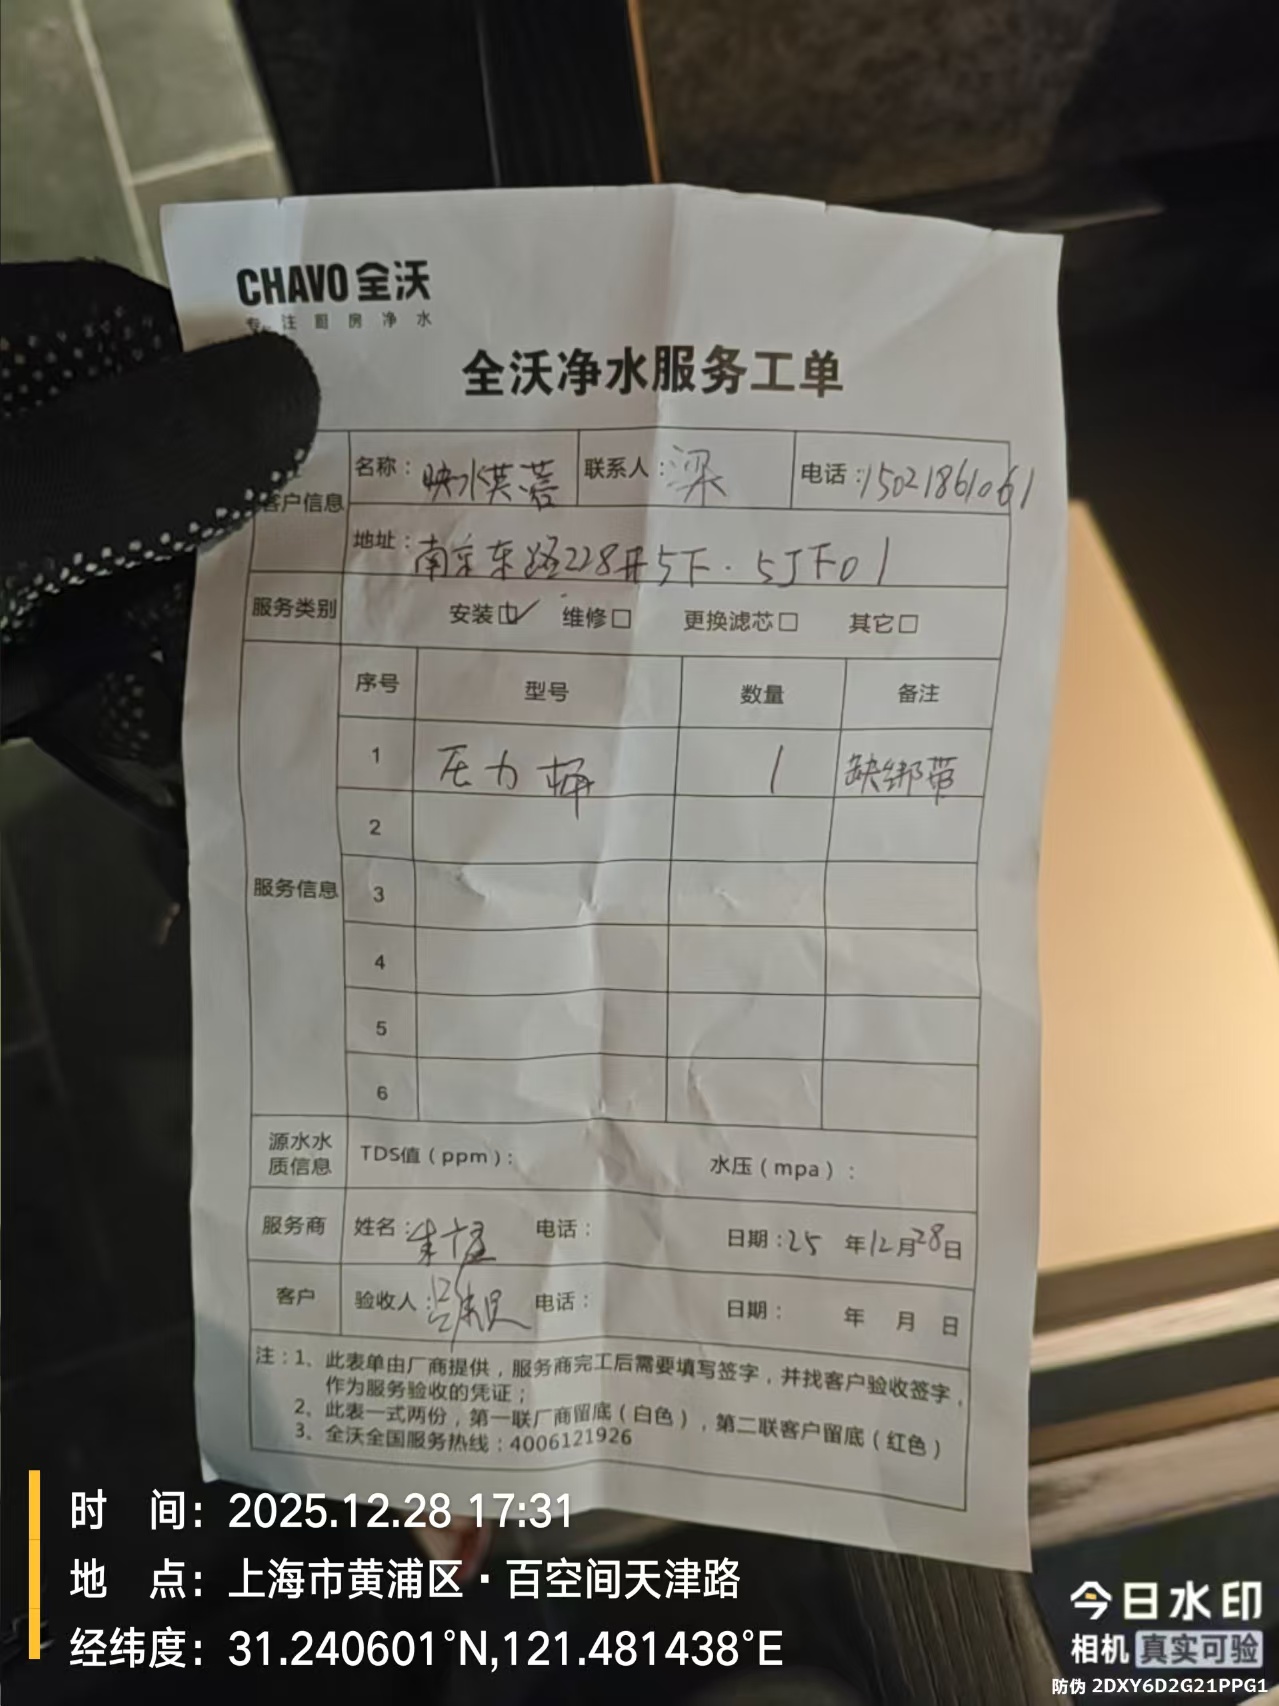 CHAVO 全沃
专注厨房净水
全沃净水服务工单
客户信息
名称：映水芙蓉 联系人：梁 电话：15021861061
地址：南京东路228号5下．5J下01
服务类别 安装☑ 维修□ 更换滤芯□ 其它□
服务信息
序号 型号 数量 备注
1 压力桶 1 缺绑带
2
3
4
5
6
源水水质信息 TDS值（ppm）： 水压（mpa）：
服务商 姓名： 电话： 日期：25 年12月28日
客户 验收人： 电话： 日期： 年 月 日
注：1、此表单由厂商提供，服务商完工后需要填写签字，并找客户验收签字，
作为服务验收的凭证；
2、此表一式两份，第一联厂商留底（白色），第二联客户留底（红色）
3、全沃全国服务热线：4006121926
时 间：2025.12.28 17:31
地 点：上海市黄浦区·百空间天津路
经纬度：31.240601°N,121.481438°E
今日水印
相机 真实可验
防伪 2DXY6D2G21PPG1